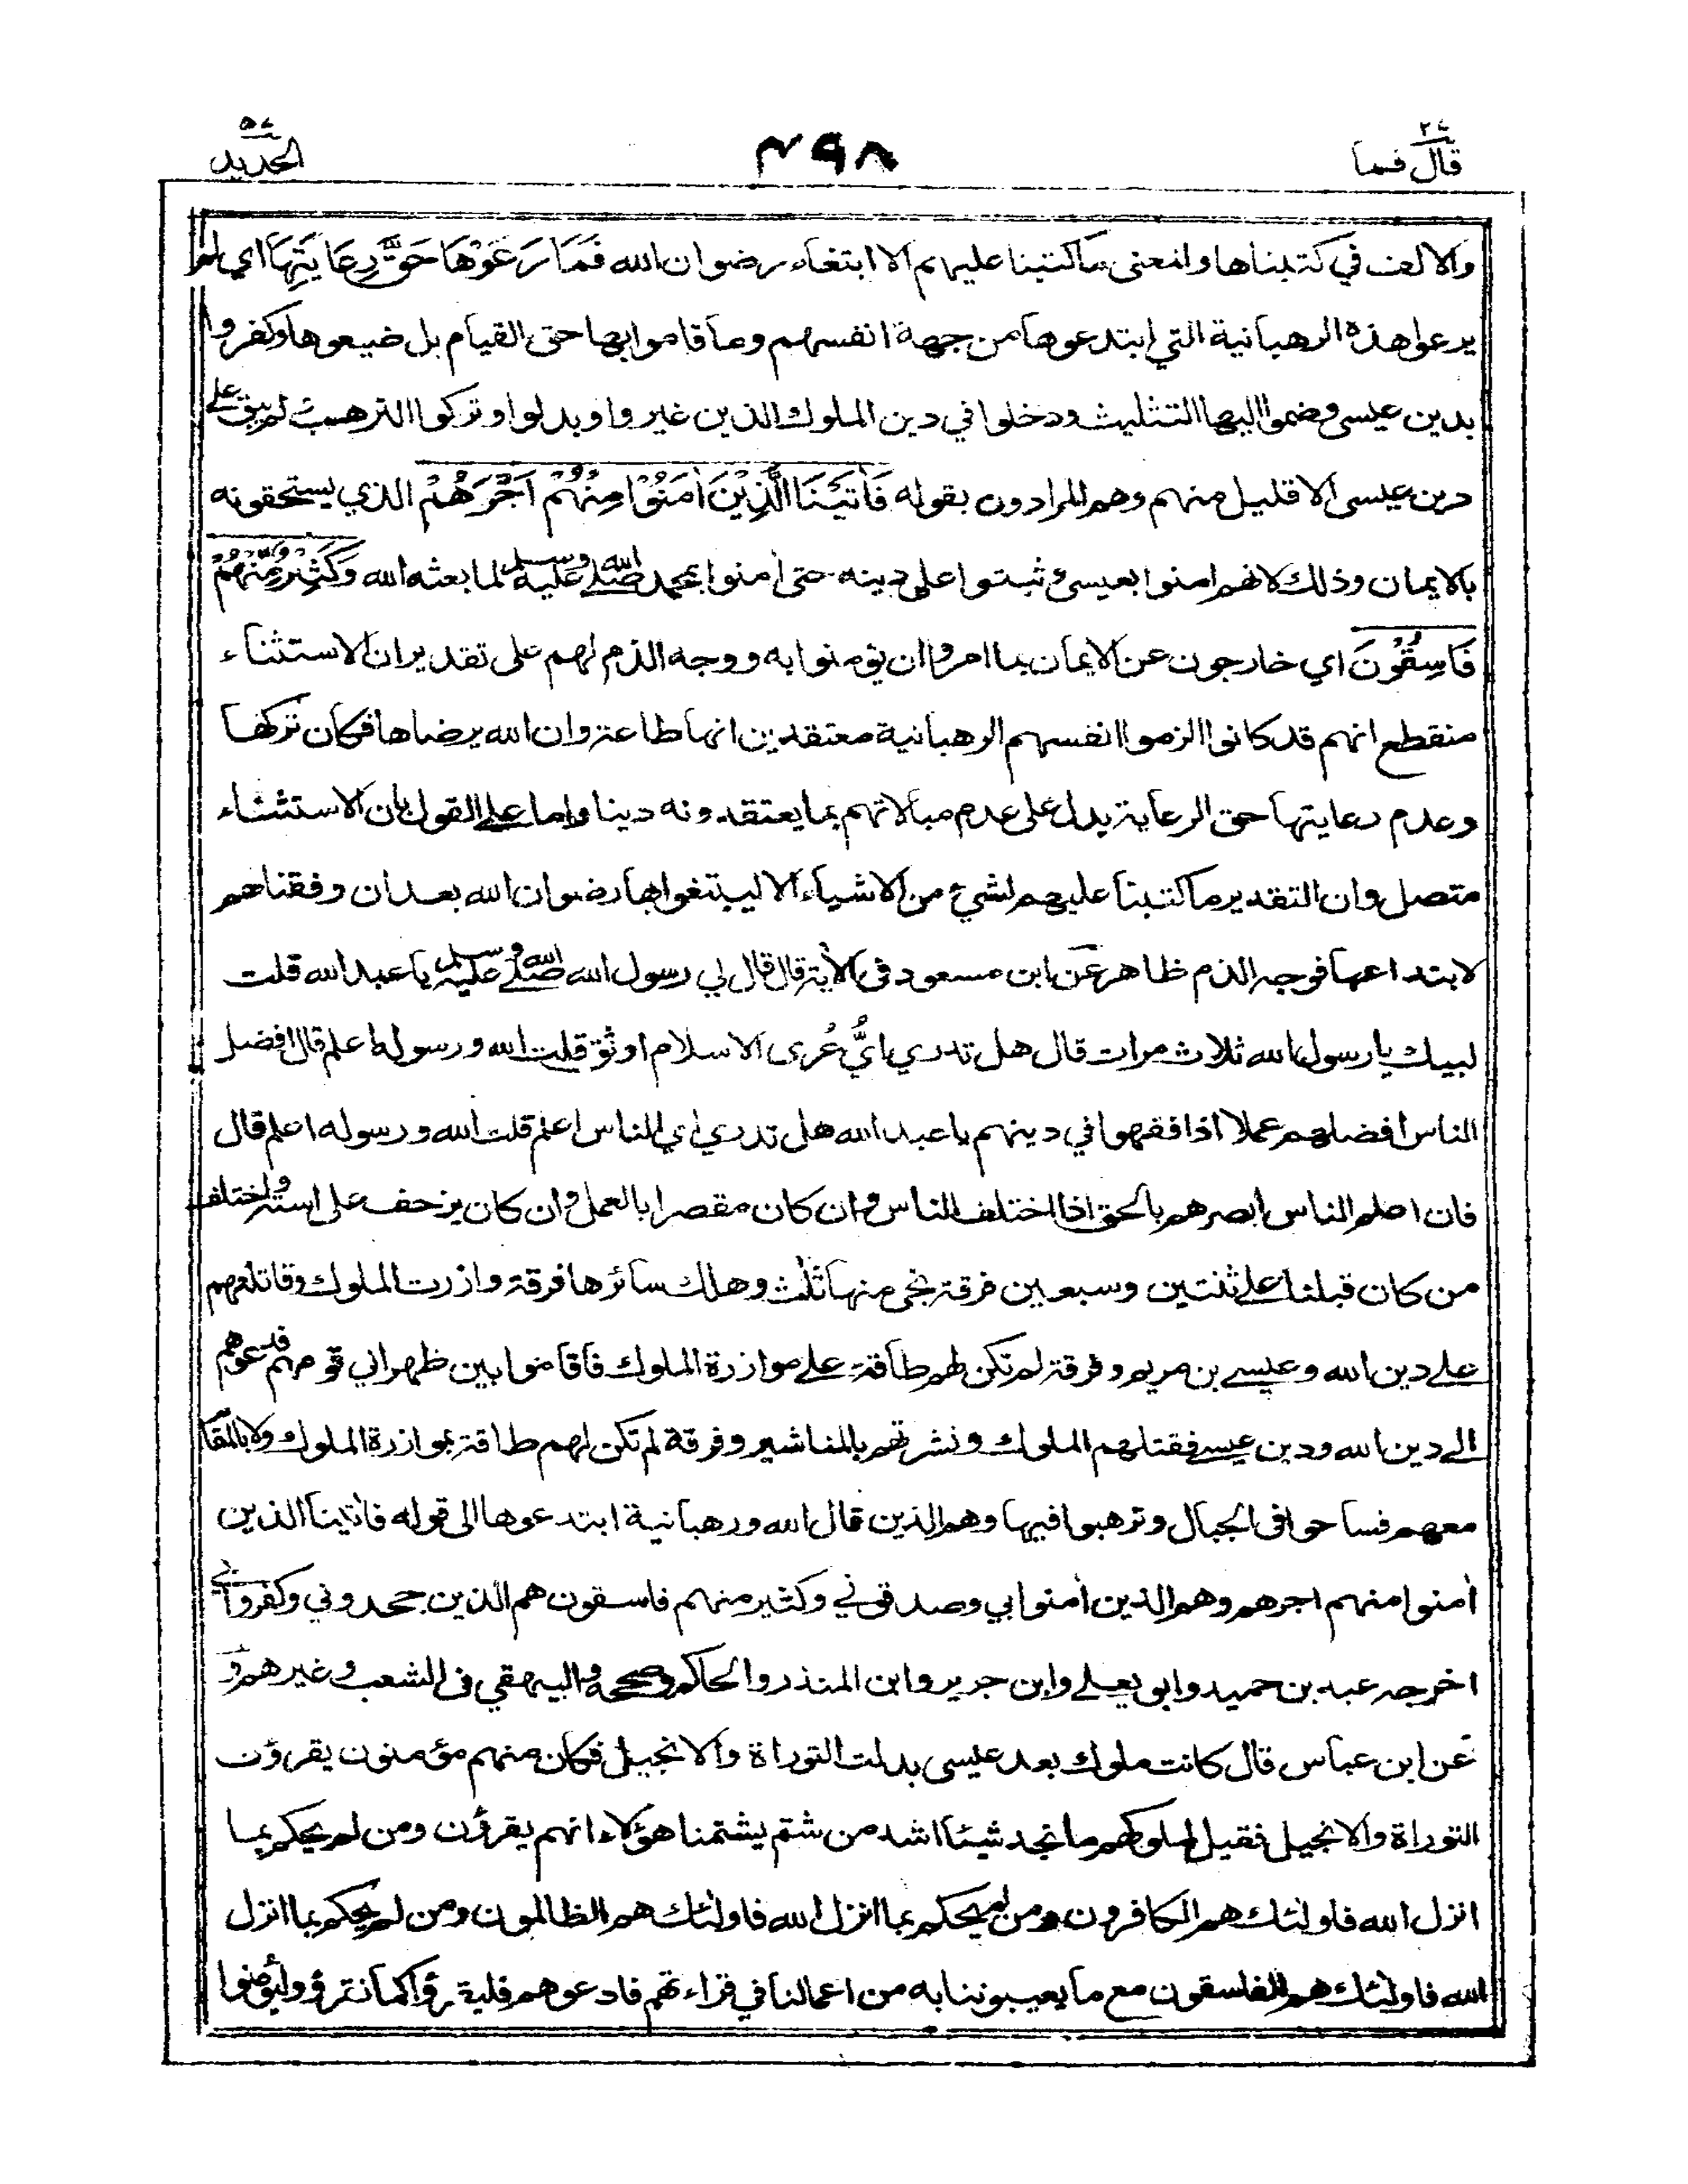 قال فما ٢٧
٢٩٨
الحديد ٥٧
والالف في كتبناها والمعنى ما كتبنا عليهم الا ابتغاء رضوان الله فَمَا رَعَوْهَا حَقَّ رِعَايَتِهَا اي لم
يرعوا هذه الرهبانية التي ابتدعوها من جهة انفسهم وما قاموا بها حق القيام بل ضيعوها وكفروا
بدين عيسى وضموا اليها التثليث ودخلوا في دين الملوك الذين غيروا وبدلوا وتركوا الترهب لم يبق على
دين عيسى الا قليل منهم وهم المرادون بقوله فَاٰتَيْنَا الَّذِيْنَ اٰمَنُوْا مِنْهُمْ اَجْرَهُمْ الذي يستحقونه
بالايمان وذلك لانهم امنوا بعيسى وثبتوا على دينه حتى اٰمنوا بمحمد صلى الله عليه وسلم لما بعثه الله وَكَثِيْرٌ مِّنْهُمْ
فَاسِقُوْنَ اي خارجون عن الايمان بما امروا ان يؤمنوا به ووجه الذم لهم على تقدير ان الاستثناء
منقطع انهم قد كانوا الزموا انفسهم الرهبانية معتقدين انها طاعة وان الله يرضاها فكان تركها
وعدم رعايتها حق الرعاية يدل على عدم مبالاتهم بما يعتقدونه دينا واما على القول بان الاستثناء
متصل وان التقدير ما كتبنا عليهم لشيء من الاشياء الا ليبتغوا بها رضوان الله بعد ان وفقناهم
لابتداعها فوجه الذم ظاهر عن ابن مسعود في الاٰية قال قال لي رسول الله صلى الله عليه وسلم يا عبد الله قلت
لبيك يا رسول الله ثلاث مرات قال هل تدري ايُّ عُرى الاسلام اوثق قلت الله ورسوله اعلم قال افضل
الناس افضلهم عملا اذا فقهوا في دينهم يا عبد الله هل تدري اي الناس اعلم قلت الله ورسوله اعلم قال
فان اعلم الناس ابصرهم بالحق اذا اختلف الناس وان كان مقصرا بالعمل وان كان يزحف على استه واختلف
من كان قبلنا على ثنتين وسبعين فرقة نجى منها ثلث وهلك سائرها فرقة وازرت الملوك وقاتلتهم
على دين الله وعيسى بن مريم وفرقة لم تكن لهم طاقة على موازرة الملوك فاقاموا بين ظهراني قومهم فدعوهم
الى دين الله ودين عيسى فقتلهم الملوك ونشرتهم بالمناشير وفرقة لم تكن لهم طاقة بموازرة الملوك ولا بالمقا
معهم فساحوا في الجبال وترهبوا فيها وهم الذين قال الله ورهبانية ابتدعوها الى قوله فاٰتينا الذين
اٰمنوا منهم اجرهم وهم الذين اٰمنوا بي وصدقوني وكثير منهم فاسقون هم الذين جحدوني وكفروا بي
اخرجه عبد بن حميد وابو يعلى وابن جرير وابن المنذر والحاكم وصححه والبيهقي في الشعب وغيرهم و
عن ابن عباس قال كانت ملوك بعد عيسى بدلت التوراة والانجيل فكان منهم مؤمنون يقرؤن
التوراة والانجيل فقيل لملوكهم ما نجد شيئا اشد من شتم يشتمنا هؤلاء انهم يقرؤن ومن لم يحكم بما
انزل الله فاولئك هم الكافرون ومن لم يحكم بما انزل الله فاولئك هم الظالمون ومن لم يحكم بما انزل
الله فاولئك هم الفاسقون مع ما يعيبوننا به من اعمالنا في قراءتهم فادعوهم فليقرؤا كما نقرؤ وليؤمنوا